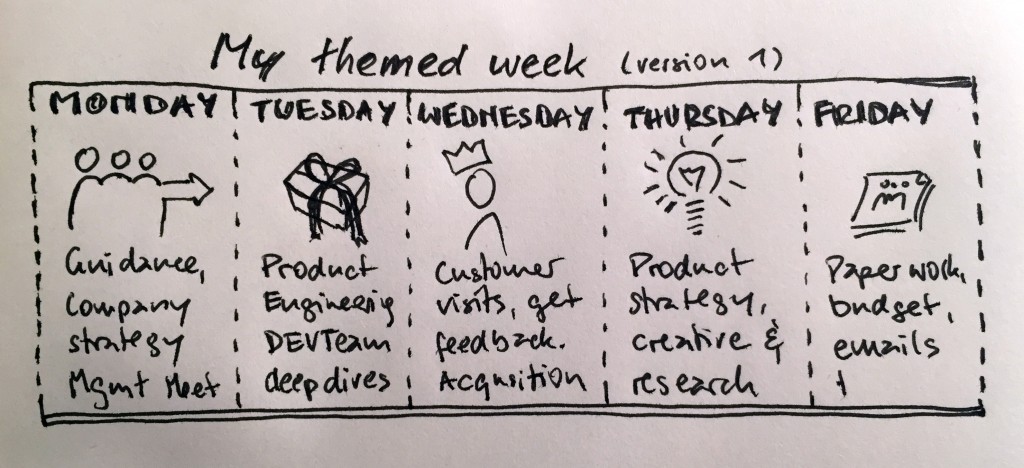 My themed week (version 1)
MONDAY
Guidance,
Company
strategy
Mgmt Meet
TUESDAY
Product
Engineering
DEVTeam
deepdives
WEDNESDAY
Customer
visits, get
feedback.
Acqusition
THURSDAY
Product
strategy,
creative &
research
FRIDAY
Paper work,
budget,
emails